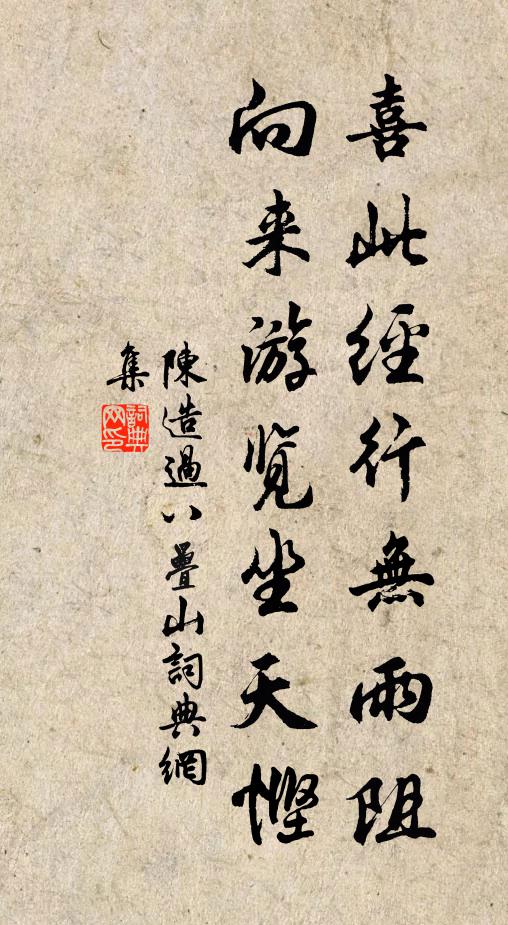 喜此經行無雨阻
向来游覽坐天慳
陳造過八疊山詞典網
集
詞典網印